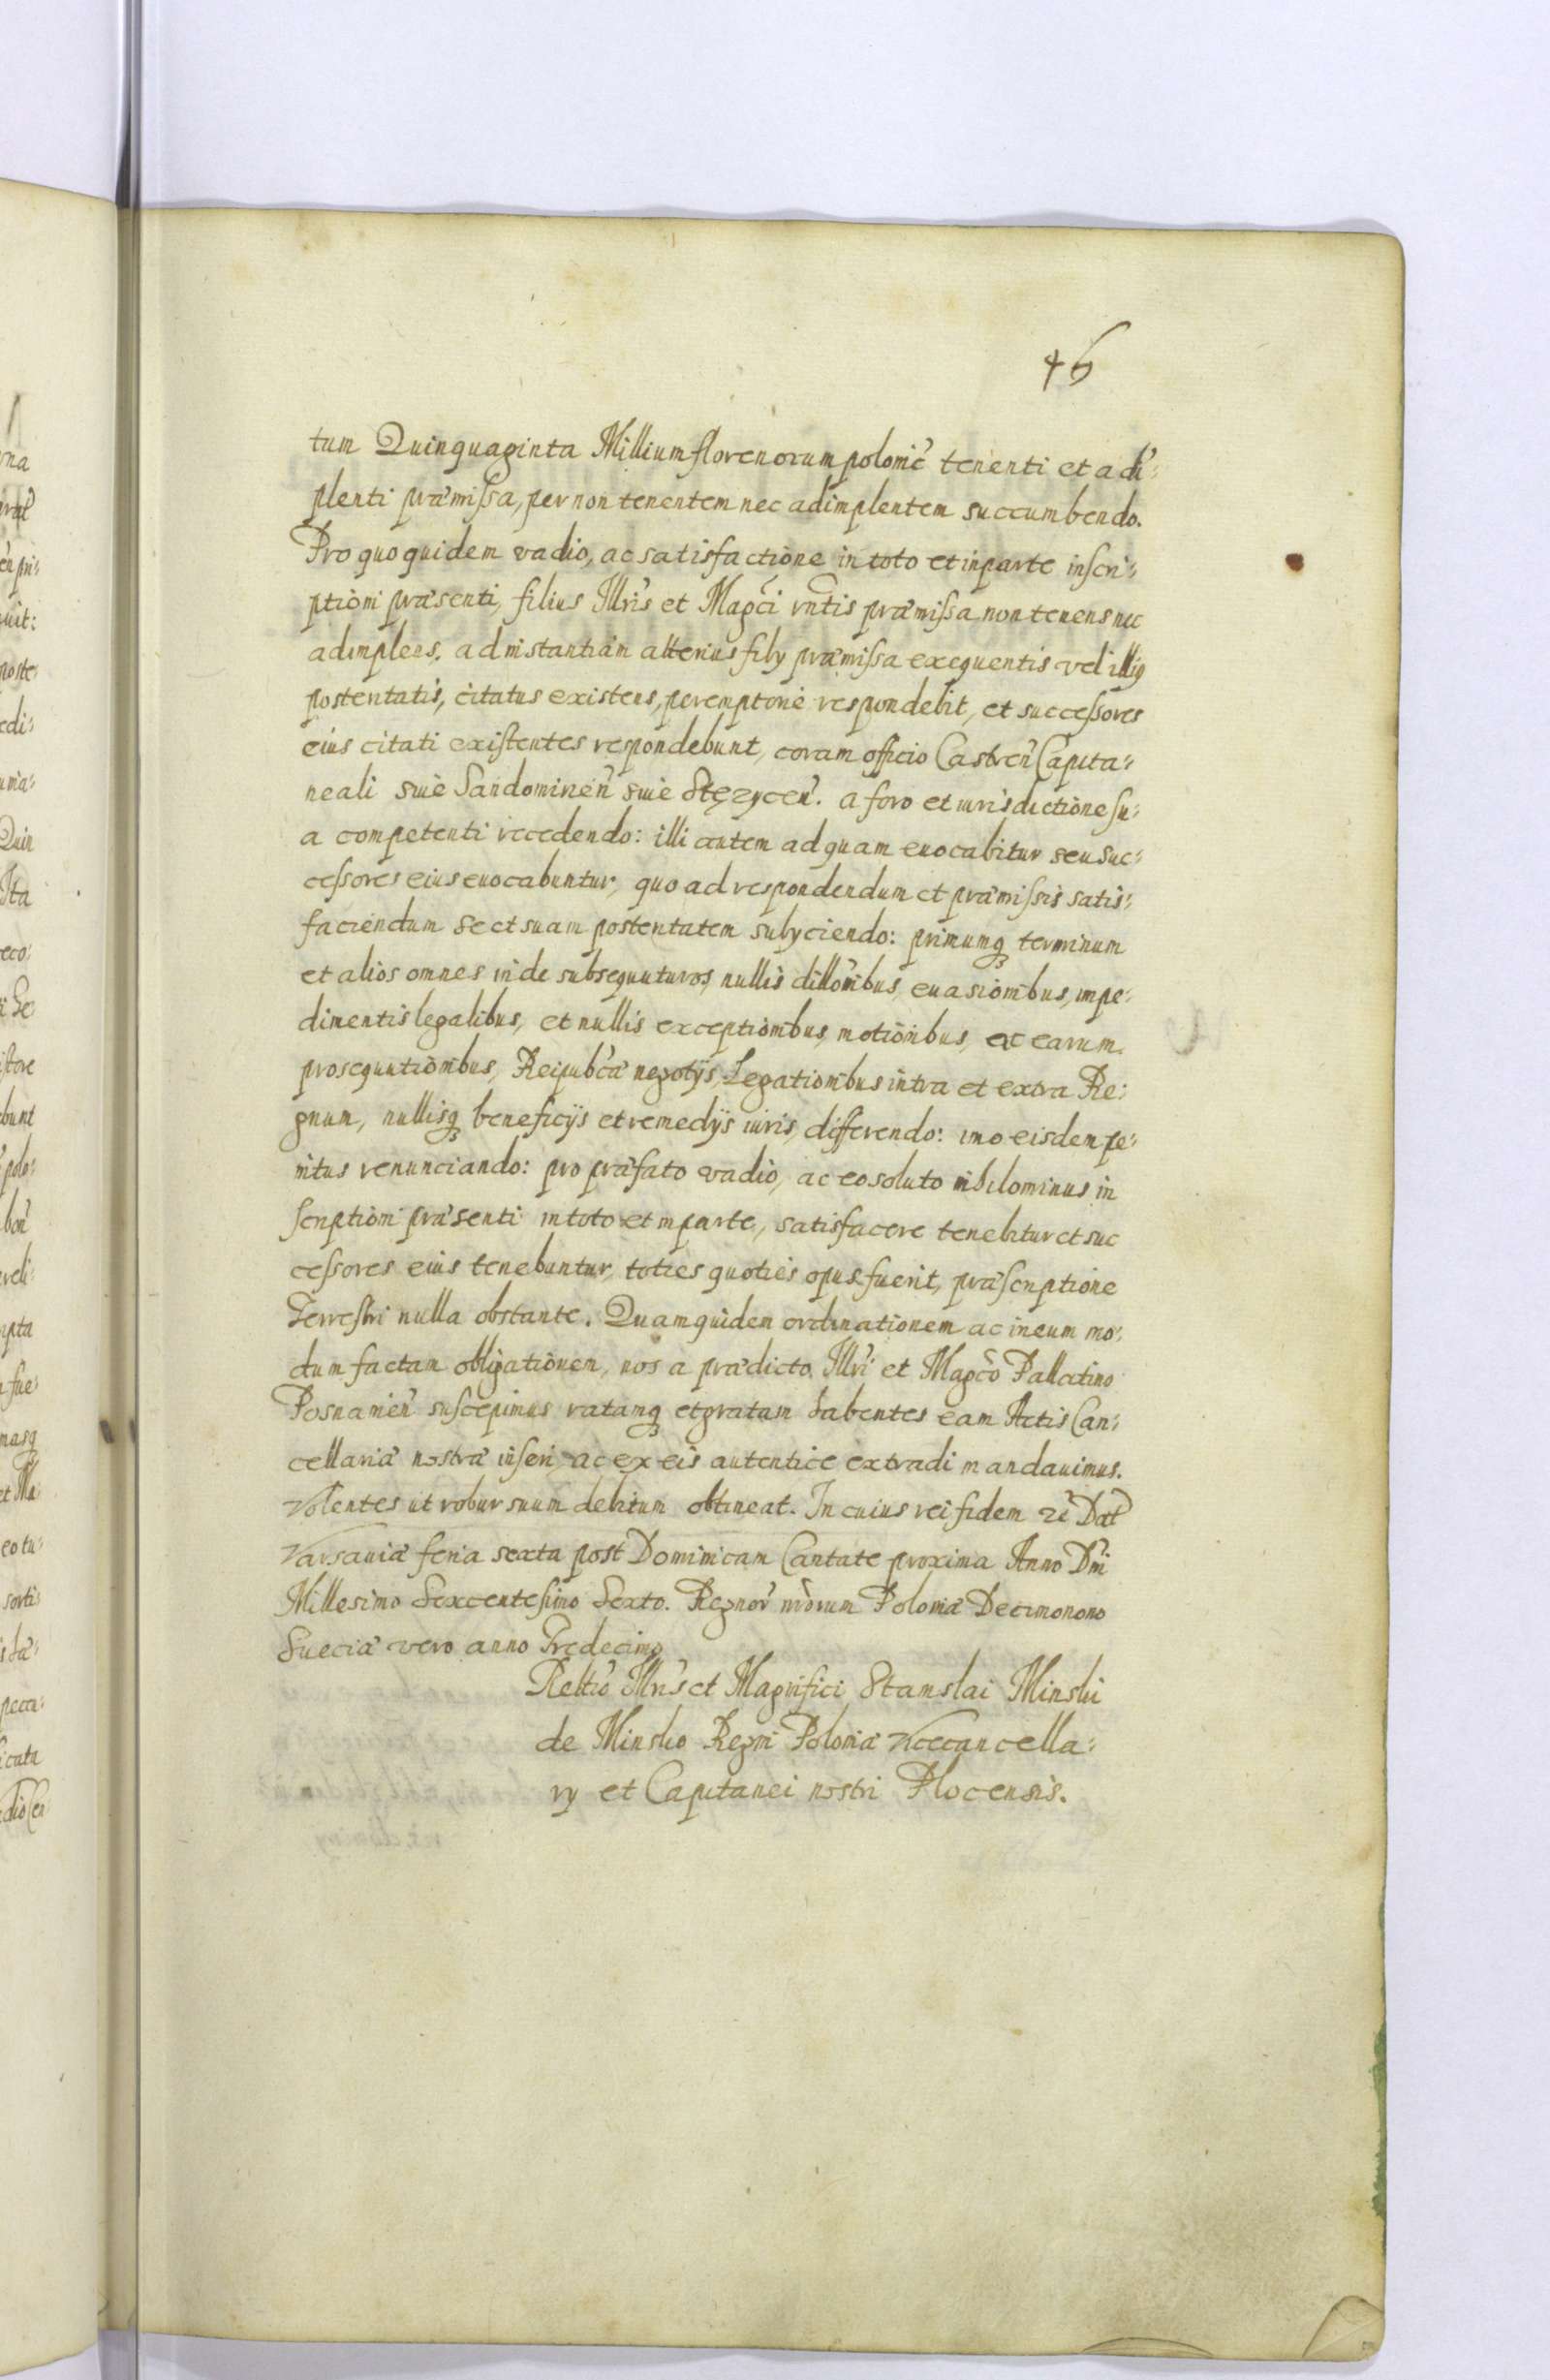 46
tum Quinquaginta Millium florenorum polonić tenenti et adi:
plenti præmissa, per non tenentem nec adimplentem succumbendo.
Pro quo quidem vadio, ac satisfactione in toto et in parte inscri:
ptioni præsenti, filius Illris et Magci rntis præmissa non tenens nec
adimplens, ad instantiam alterius filÿ præmissa exequentis vel illig
postentatis, citatus existens, peremptorie respondebit, et successores
eius citati existentes respondebunt, coram officio Castreñ Capita:
neali siue Sandomirień siue Stęzyceń. a foro et iurisdictione su:
a competenti recedendo: illi autem ad quam euocabitur seu suc:
cessores eius euocabuntur, quo ad respondendum et præmissis satis:
faciendum se et suam postentatem subyciendo: primumq terminum
et alios omnes inde subsequuturos, nullis dillonibus, euasionibus, impe:
dimentis legalibus, et nullis exceptionibus, motionibus, ac earum
prosequutionibus, Reipubcæ negotÿs, Legationibus intra et extra Re:
gnum, nullisq beneficÿs et remedÿs iuris, differendo: imo eisdem pe:
nitus renunciando: pro præfato vadio, ac eo soluto nihilominus in
scriptioni præsenti in toto et in parte, satisfacere tenebitur et suc
cessores eius tenebuntur, toties quoties opus fuerit, præscriptione
Terrestri nulla obstante. Quamquidem ordinationem ac in eum mo:
dum factam obligationem, nos a prædicto Illri et Magco Pallatino
Posnanień suscepimus ratamq et gratam habentes eam Actis Can:
cellariæ nostræ inseri, ac ex eis autentice extradi mandauimus.
Volentes ut robur suum debitum obtineat. In cuius rei fidem zc Dat
Varsauiæ feria sexta post Dominicam Cantate proxima Anno Dni
Millesimo Sexcentesimo Sexto. Regnor nrorum Poloniæ Decimonono
Sueciæ vero anno Tredecimo
Reltio Illris et Magnifici Stanislai Minski
de Minsko Regni Poloniæ Vicecancella:
rÿ et Capitanei nostri Plocensis.